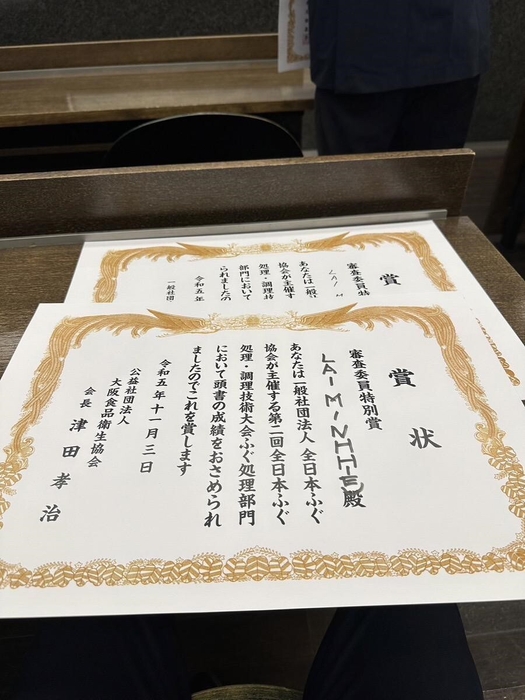 賞
審査委員特
LAI M
あなたは一般
協会が主催す
処理・調理技
部門において
られましたの
令和五年
一般社団
賞状
審査委員特別賞
LAI MINHHIE殿
あなたは一般社団法人 全日本ふぐ
協会が主催する第二回全日本ふぐ
処理・調理技術大会ふぐ処理部門
において頭書の成績をおさめられ
ましたのでこれを賞します
令和五年十一月三日
公益社団法人
大阪食品衛生協会
会長 津田孝治